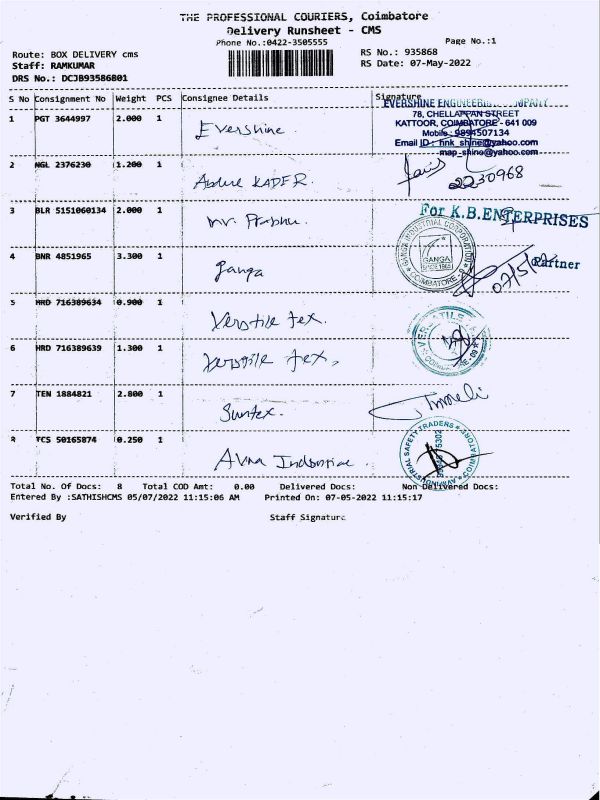 THE PROFESSIONAL COURIERS, Coimbatore
Delivery Runsheet - CMS
Phone No.:0422-3505555
Page No.:1
Route: BOX DELIVERY cms
RS No.: 935868
Staff: RAMKUMAR
RS Date: 07-May-2022
DRS No.: DCJB93586801
S No Consignment No Weight PCS Consignee Details Signature
EVERSHINE
78, CHELLAPPAN STREET
KATTOOR, COIMBATORE - 641 009
Mobile : 9894507134
Email ID : hnk_shine@yahoo.com
map_shine@yahoo.com
1 PGT 3644997 2.000 1 Evershine
2 NGL 2376230 1.200 1 Abdul KADER. 2230968
3 BLR 5151060134 2.000 1 Mr. Prabhu. For K.B.ENTERPRISES
GANGA INDUSTRIAL CORPORATION
GANGA
SINCE 1965
COIMBATORE-9
4 BNR 4851965 3.300 1 Ganga Partner
5 HRD 716389634 0.900 1 Verstile tex.
6 HRD 716389639 1.300 1 Verstile tex.
7 TEN 1884821 2.800 1 Suntex.
8 TCS 50165874 0.250 1
INDUSTRIAL SAFETY TRADERS
Total No. Of Docs: 8 Total COD Amt: 0.00 Delivered Docs: Non Delivered Docs:
Entered By :SATHISHCMS 05/07/2022 11:15:06 AM Printed On: 07-05-2022 11:15:17
Verified By Staff Signature